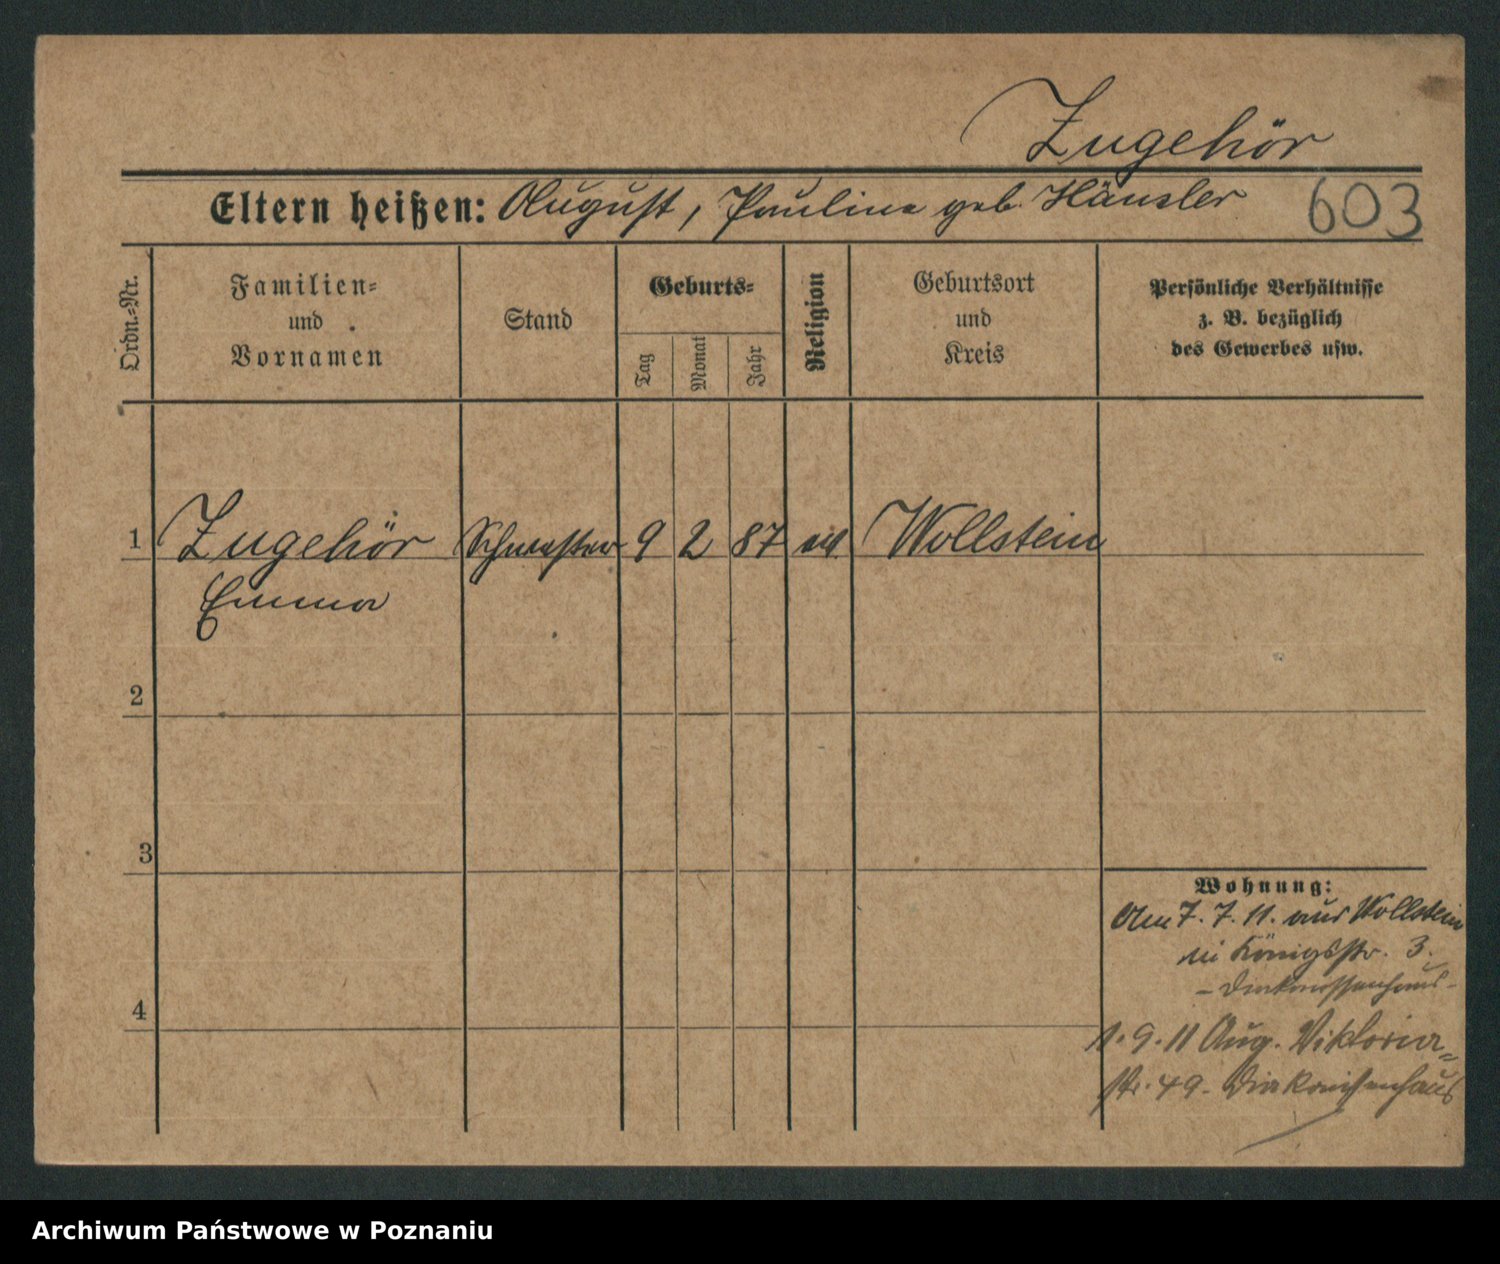 Zugehör
Eltern heißen: August, Pauline geb. Hänsler
603
Ordn.-Nr.
Familien-
und
Vornamen
Stand
Geburts-
Tag
Monat
Jahr
Religion
Geburtsort
und
Kreis
Persönliche Verhältnisse
z. B. bezüglich
des Gewerbes usw.
1 Zugehör Schwester 9 2 87 Wollstein
Emma
2
3
4
Wohnung:
Am 7. 7. 11. aus Wollstein
in Königsstr. 3.
- Diakonissenhaus -
1. 9. 11 Aug. Viktoria-
str. 49. Diakonissenhaus
Archiwum Państwowe w Poznaniu